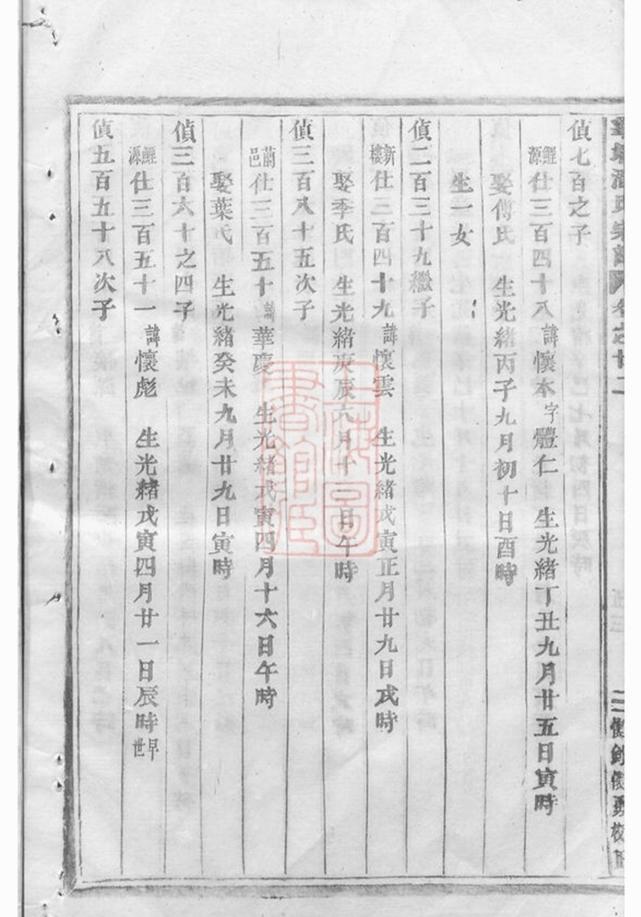 潘氏宗譜 卷之廿二
懷釗懷勇校正
偵七百之子
鯉源仕三百四十八諱懷本字體仁 生光緒丁丑九月廿五日寅時
娶傅氏 生光緒丙子九月初十日酉時
生一女
偵二百三十九繼子
新樓仕三百四十九諱懷雲 生光緒戊寅正月廿九日戌時
娶季氏 生光緒庚辰六月十三日午時
偵三百八十五次子
蘭邑仕三百五十諱華慶 生光緒戊寅四月十六日午時
娶葉氏 生光緒癸未九月廿九日寅時
偵三百六十之四子
鯉源仕三百五十一諱懷彪 生光緒戊寅四月廿一日辰時早世
偵五百五十八次子
上海圖書館藏